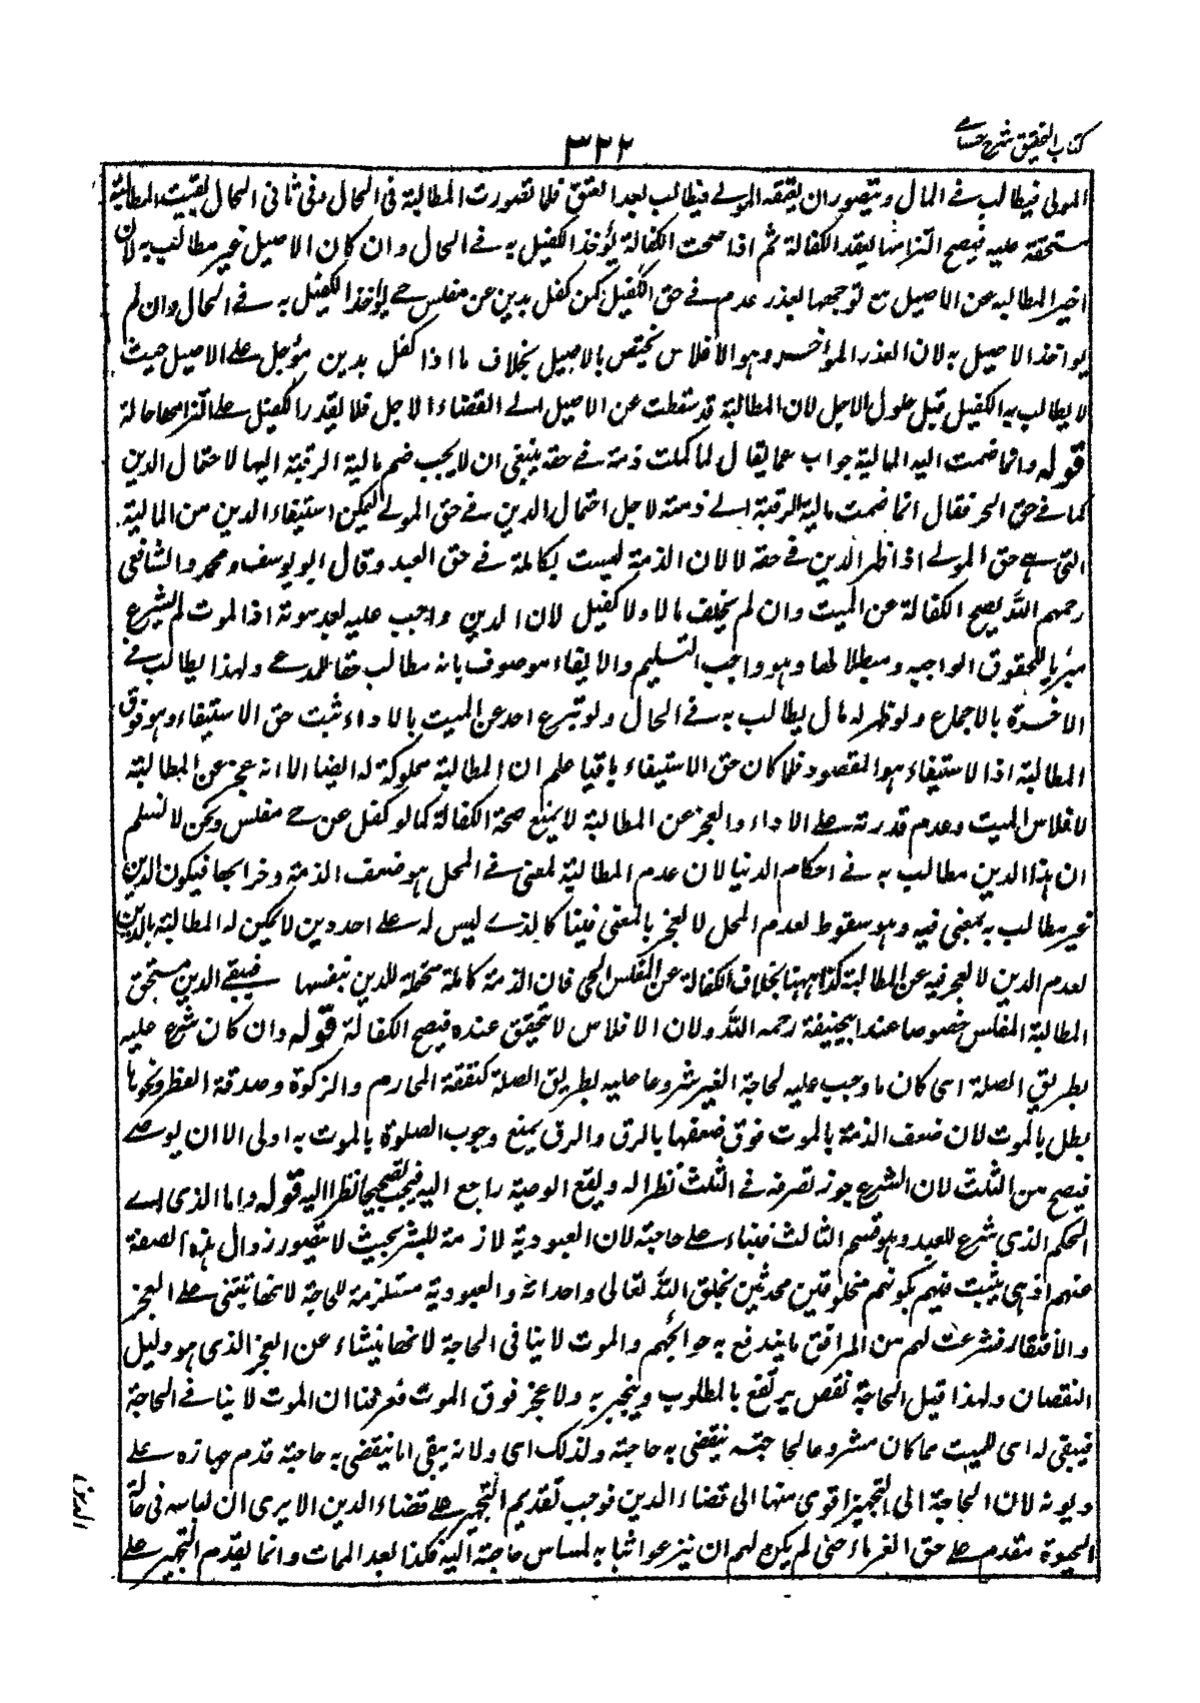 كتاب التحقيق شرح حسامي
٣٢٢
المولى فيطالب في المال ويتصور ان يعتقه المولى فيطالب بعد العتق فلما تصورت المطالبة في الحال وفي ثاني الحال بقيت المطالبة
مستحقة عليه فيصح التزامها بعقد الكفالة ثم اذا صحت الكفالة يؤخذ الكفيل به في الحال وان كان الاصيل غير مطالب به لان
اخير المطالبة عن الاصيل مع توجهها بعذر عدم في حق الكفيل كمن كفل بدين عن مفلس حي يؤاخذ الكفيل به في الحال وان لم
يواخذ الاصيل به لان العذر المؤخر وهو الافلاس يختص بالاصيل بخلاف ما اذا كفل بدين مؤجل على الاصيل حيث
لا يطالب به الكفيل قبل حلول الاجل لان المطالبة قد سقطت عن الاصيل الى انقضاء الاجل فلا يقدر الكفيل على التزامها حالة
قوله وانما ضمت اليه المالية جواب عما يقال لما كملت ذمته في حقه ينبغي ان لا يجب ضم مالية الرقبة اليها لاحتمال الدين
كما في حق الحر فقال انما ضمت مالية الرقبة الى ذمته لاجل احتمال الدين في حق المولى ليمكن استيفاء الدين من المالية
التي هي حق المولى اذا ظهر الدين في حقه لا لان الذمة ليست بكاملة في حق العبد وقال ابو يوسف ومحمد والشافعي
رحمهم الله يصح الكفالة عن الميت وان لم يخلف مالا ولا كفيل لان الدين واجب عليه بعد موته اذ الموت لم يشرع
مبرئا للحقوق الواجبه ومبطلا لها وهو واجب التسليم والايفاء موصوف بانه مطالب حقا للمدعى ولهذا يطالب في
الاخرة بالاجماع ولو ظهر له مال يطالب به في الحال ولو تبرع احد عن الميت بالاداء ثبت حق الاستيفاء وهو فوق
المطالبة اذ الاستيفاء هو المقصود فلما كان حق الاستيفاء باقيا علم ان المطالبة مملوكة له ايضا الا انه عجز عن المطالبة
لافلاس الميت وعدم قدرته على الاداء والعجز عن المطالبة لا يمنع صحة الكفالة كما لو كفل عن حي مفلس ونحن لا نسلم
ان هذا الدين مطالب به في احكام الدنيا لان عدم المطالبة لمعنى في المحل هو ضعف الذمة وخرابها فيكون الدين
غير مطالب به بمعنى فيه وهو سقوط لعدم المحل لا لعجز بالمعنى فينا كالذي ليس له على احد دين لا يمكن له المطالبة بالدين
لعدم الدين لا لعجز فيه عن المطالبة كذا ههنا بخلاف الكفالة عن المفلس الحي فان الذمة كاملة محتملة للدين بنفسها فيبقى الدين مستحق
المطالبة المفلس خصوصا عند ابيحنيفة رحمه الله ولان الافلاس لا يتحقق عنده فيصح الكفالة قوله وان كان شرع عليه
بطريق الصلة اى كان ما وجب عليه لحاجة الغير شروعا عليه بطريق الصلة كنفقة المحارم والزكوة وصدقة الفطر ونحوها
بطل بالموت لان ضعف الذمة بالموت فوق ضعفها بالرق والرق يمنع وجوب الصلوة بالموت به اولى الا ان يوصى
فيصح من الثلث لان الشرع جوز تصرفه في الثلث نظرا له ويقع الوصية راجع اليه فيجب تصحيحها نظرا اليه قوله واما الذى اى
الحكم الذى شرع للعبد وهو قسم الثالث فبناء على حاجته لان العبودية لازمة للبشر بحيث لا يتصور زوال هذه الصفة
عنهم اذ هى يثبت فيهم بكونهم مخلوقين محدثين بخلق الله تعالى واحداثه والعبودية مستلزمة للحاجة لانها تبتنى على العجز
والافتقار فشرعت لهم من المرافق ما يندفع به حوائجهم والموت لا ينافى الحاجة لانها ينشاء عن العجز الذى هو دليل
النقصان ولهذا قيل الحاجة نقص يرتفع بالمطلوب وينجبر به ولا عجز فوق الموت فعرفنا ان الموت لا ينافى الحاجة
فيبقى له اى للميت مما كان مشروعا لحاجته ينقضى به حاجته ولذلك اى ولانه يبقى ما ينقضى به حاجته قدم جهازه على
ديونه لان الحاجة الى التجهيز اقوى منها الى قضاء الدين فوجب تقديم التجهيز على قضاء الدين الا يرى ان لباسه فى حالة
الحيوة مقدم على حق الغرماء حتى لم يكن لهم ان ينزعوا ثيابه لمساس حاجته اليه فكذا بعد الممات وانما يقدم التجهيز على